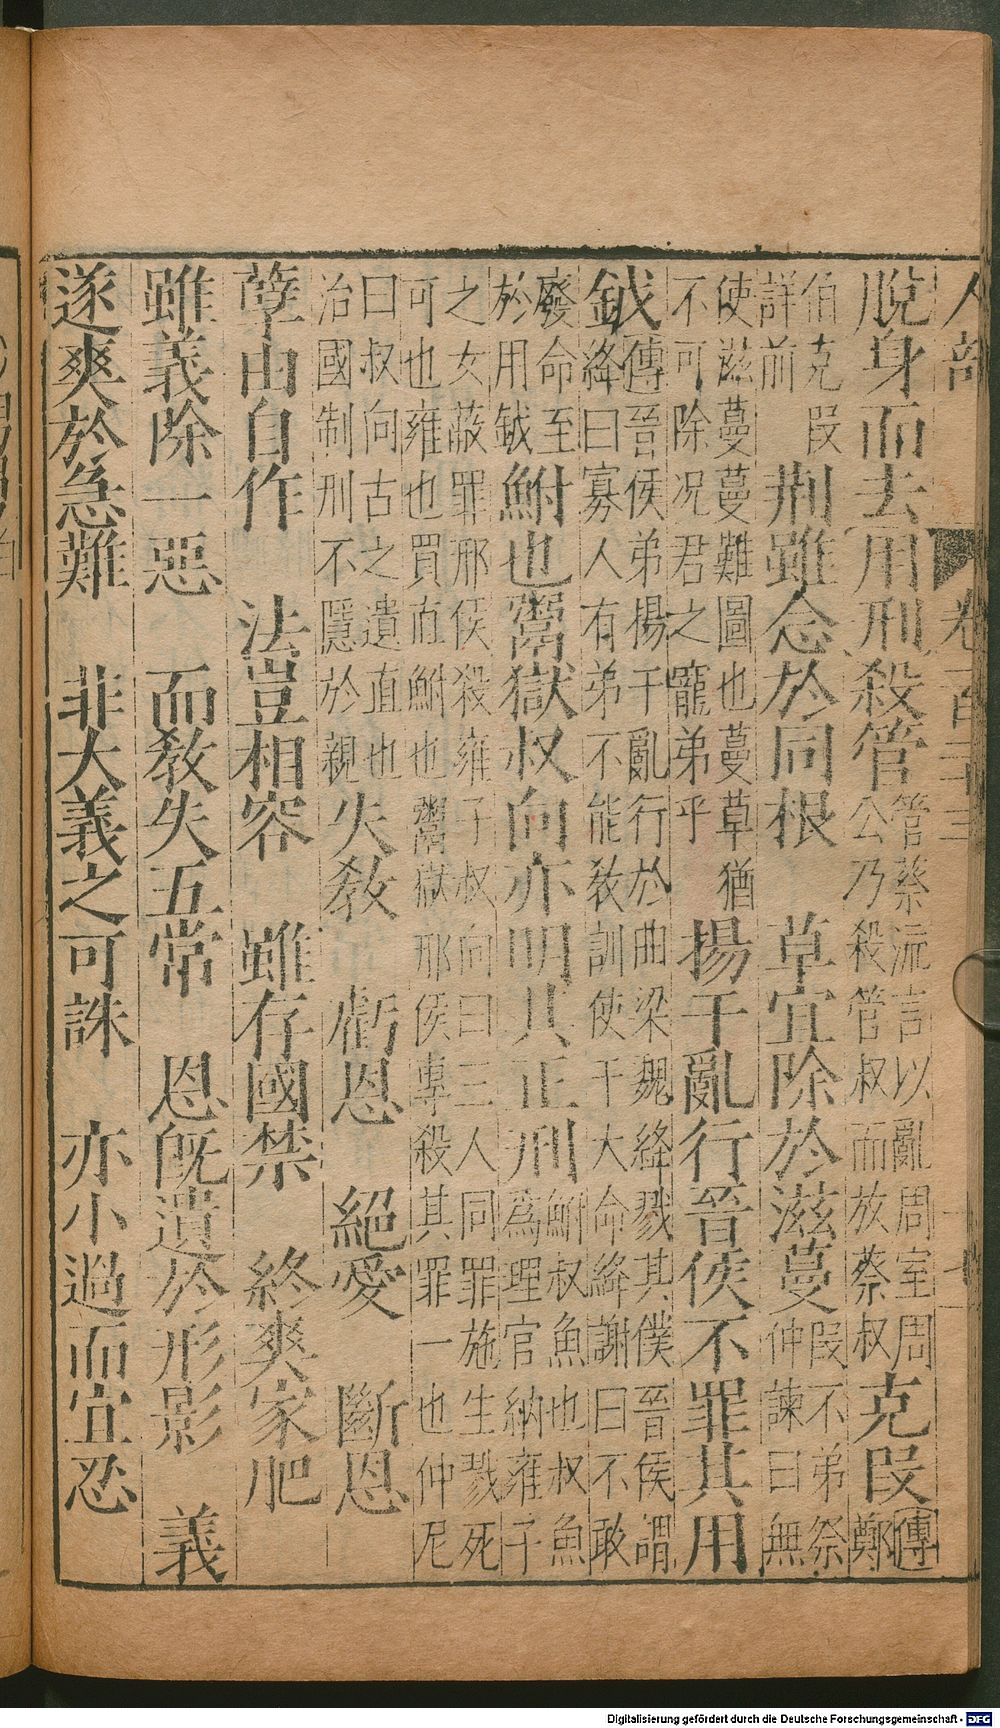 人部 卷一百二十三 十七
脫身而去用刑殺管管蔡流言以亂周室周公乃殺管叔而放蔡叔克段傳鄭
伯克段詳前荆雖念於同根 草宜除於滋蔓段不弟祭仲諫曰無
使滋蔓蔓難圖也蔓草猶不可除况君之寵弟乎揚干亂行晉侯不罪其用
鉞傳晉侯弟揚干亂行於曲梁魏絳戮其僕晉侯謂絳曰寡人有弟不能敎訓使干大命絳謝曰不敢
廢命至於用鉞鮒也鬻獄叔向亦明其正刑鮒叔魚也叔魚爲理官納雍子
之女蔽罪邢侯殺雍子叔向曰三人同罪施生戮死可也雍也買直鮒也鬻獄邢侯專殺其罪一也仲尼
曰叔向古之遺直也治國制刑不隱於親失敎 虧恩 絕愛 斷恩
孽由自作 法豈相容 雖存國禁 終爽家肥
雖義除一惡 而敎失五常 恩旣遺於形影 義
遂爽於急難 非大義之可誅 亦小過而宜忍
Digitalisierung gefördert durch die Deutsche Forschungsgemeinschaft - DFG